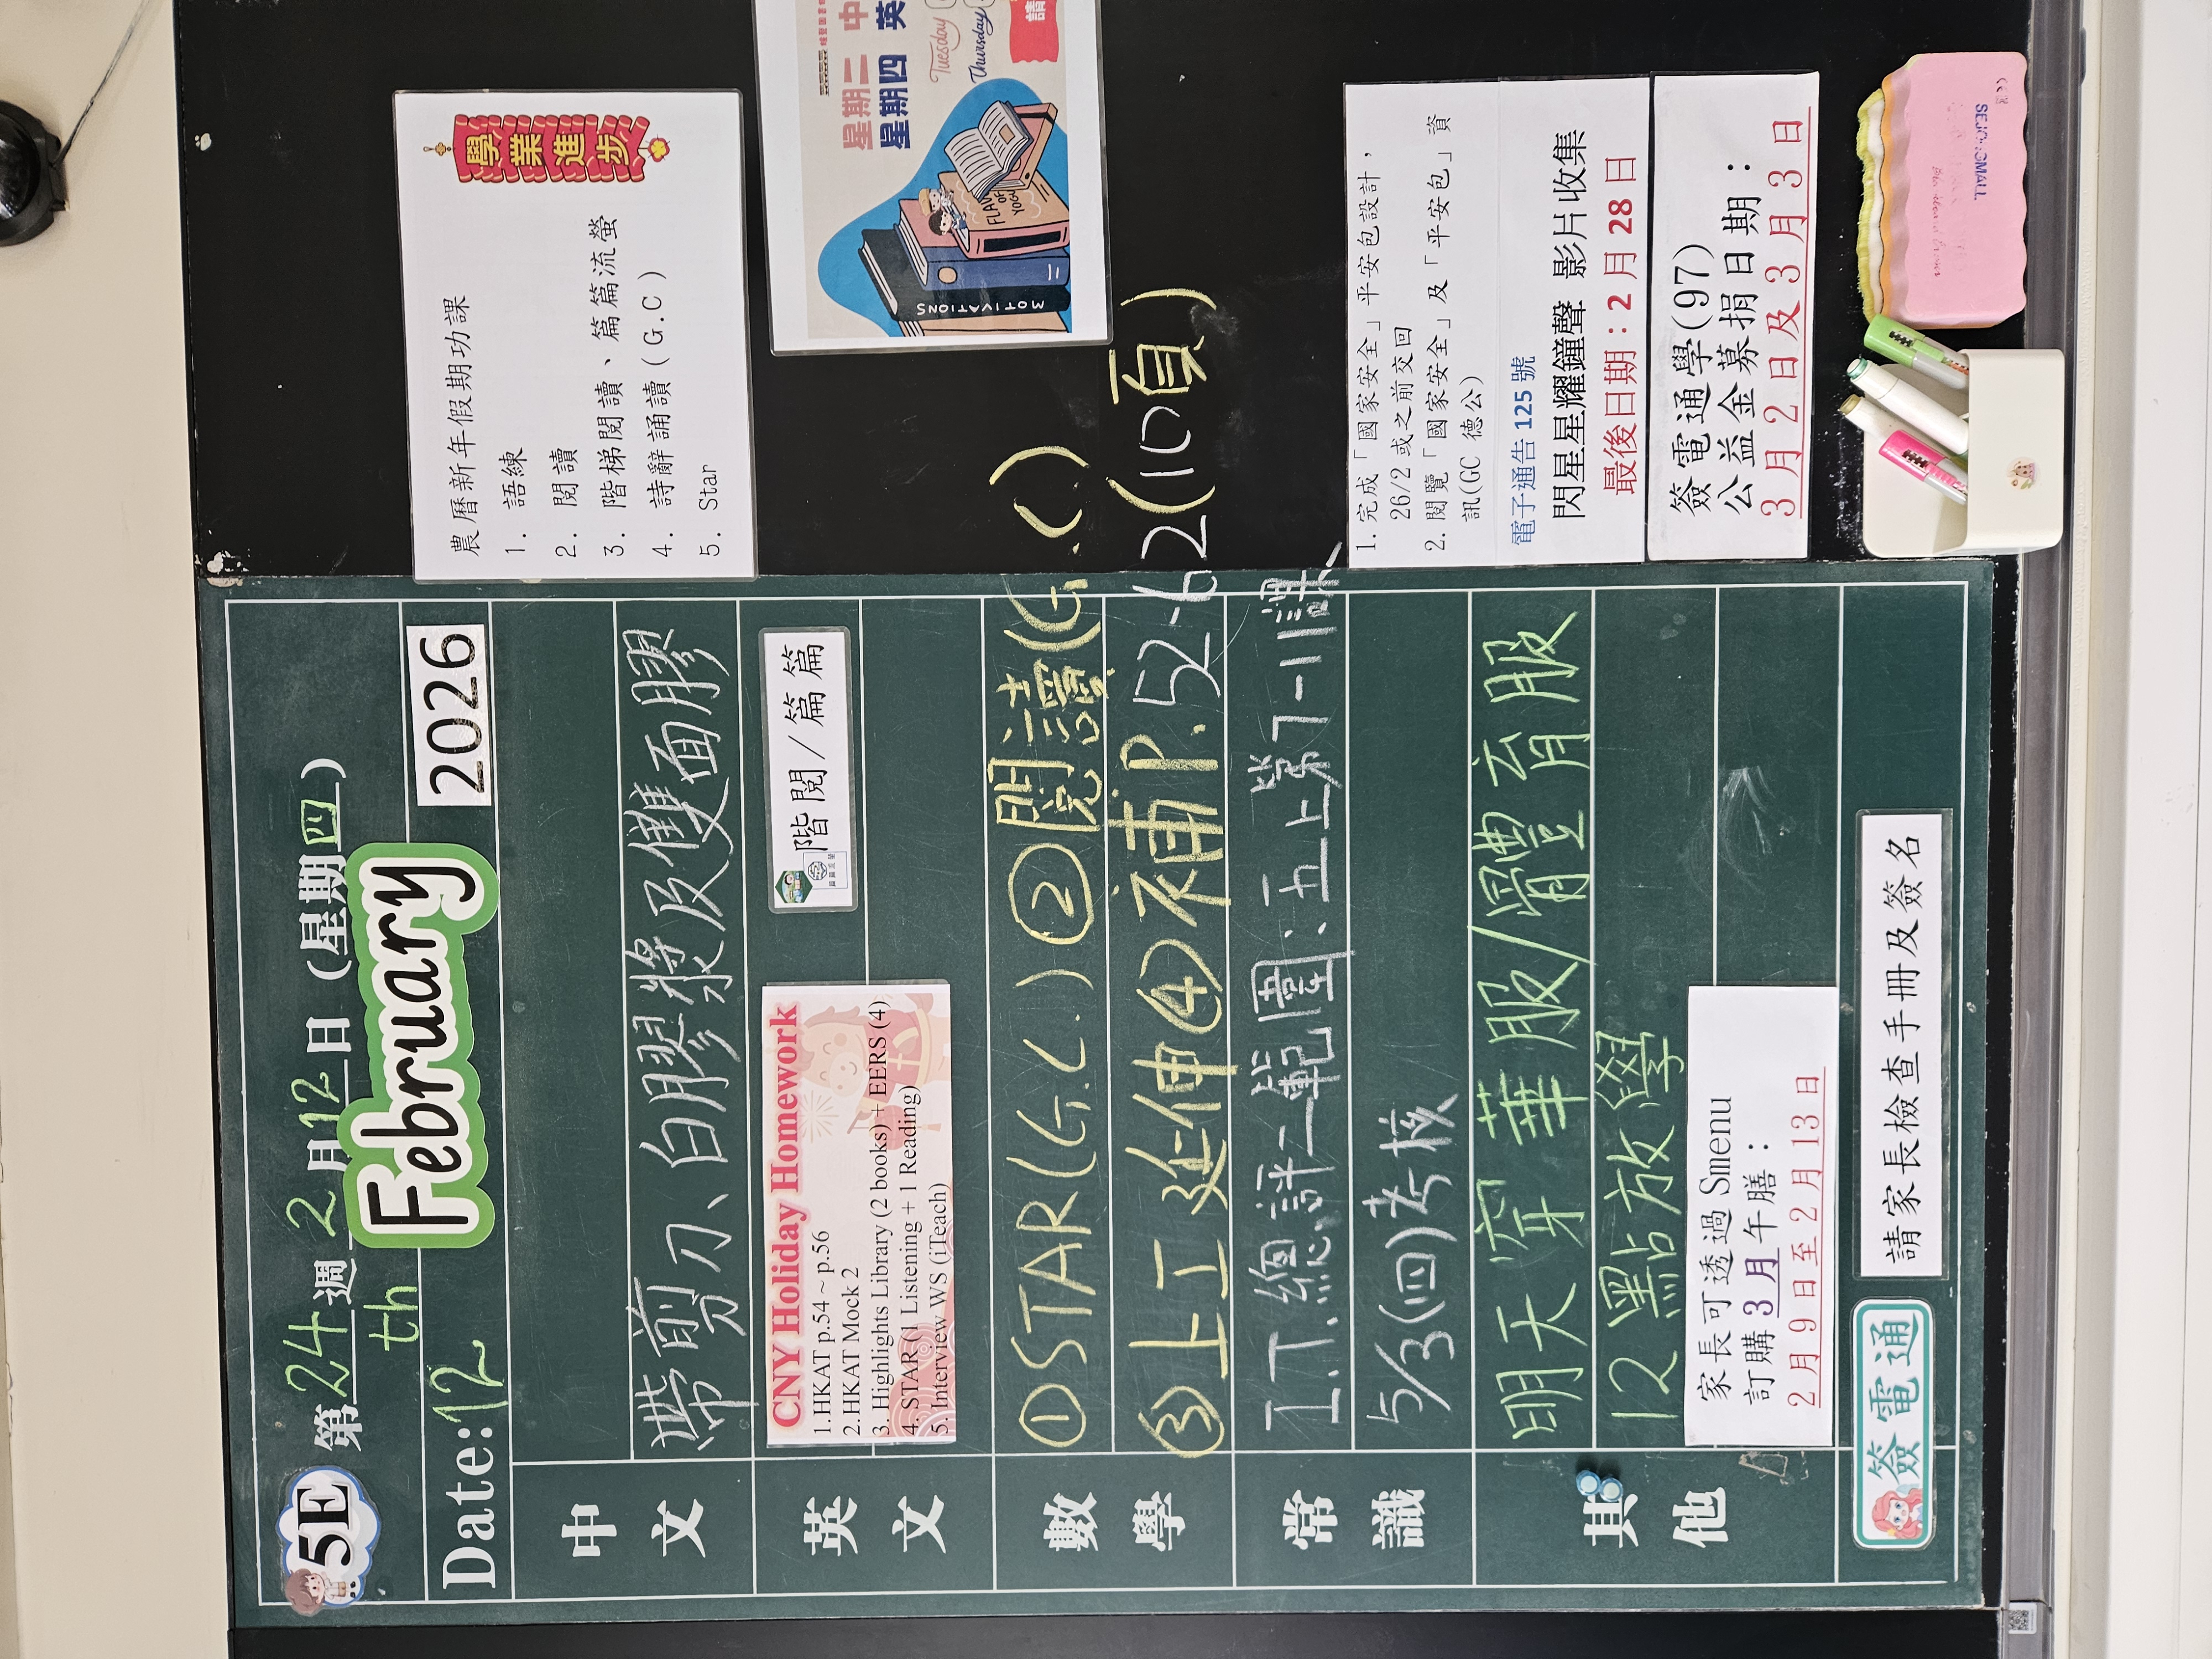 5E
第24週 2月12日 (星期四)
th
February
Date:12
2026
中文
帶剪刀、白膠漿及雙面膠
英文
CNY Holiday Homework
1.HKAT p.54 ~ p.56
2.HKAT Mock 2
3.Highlights Library (2 books) + EERS (4)
4. STAR (1 Listening + 1 Reading)
5. Interview WS (iTeach)
階閱/篇篇
數學
①STAR(G.C.) ②閱讀(G.C.)
③上工延伸④補P.52-62(10頁)
常識
I.T.總評二範圍:五上第7-11課
5/3(四)考核
其他
明天穿華服/體育服
12點放學
家長可透過 Smenu
訂購 3月 午膳：
2月9日至2月13日
簽電通
請家長檢查手冊及簽名
農曆新年假期功課
1. 語練
2. 閱讀
3. 階梯閱讀、篇篇流螢
4. 詩辭誦讀(G.C)
5. Star
學業進步
星期二 中
星期四 英
Tuesday
Thursday
請
MOTIVATIONS
FLAV
OF
YOGU
1. 完成「國家安全」平安包設計，
26/2 或之前交回
2. 閱覽「國家安全」及「平安包」資
訊(GC 德公)
電子通告 125 號
閃星星耀鐘聲 影片收集
最後日期：2 月 28 日
簽電通學(97)
公益金募捐日期：
3月2日及3月3日